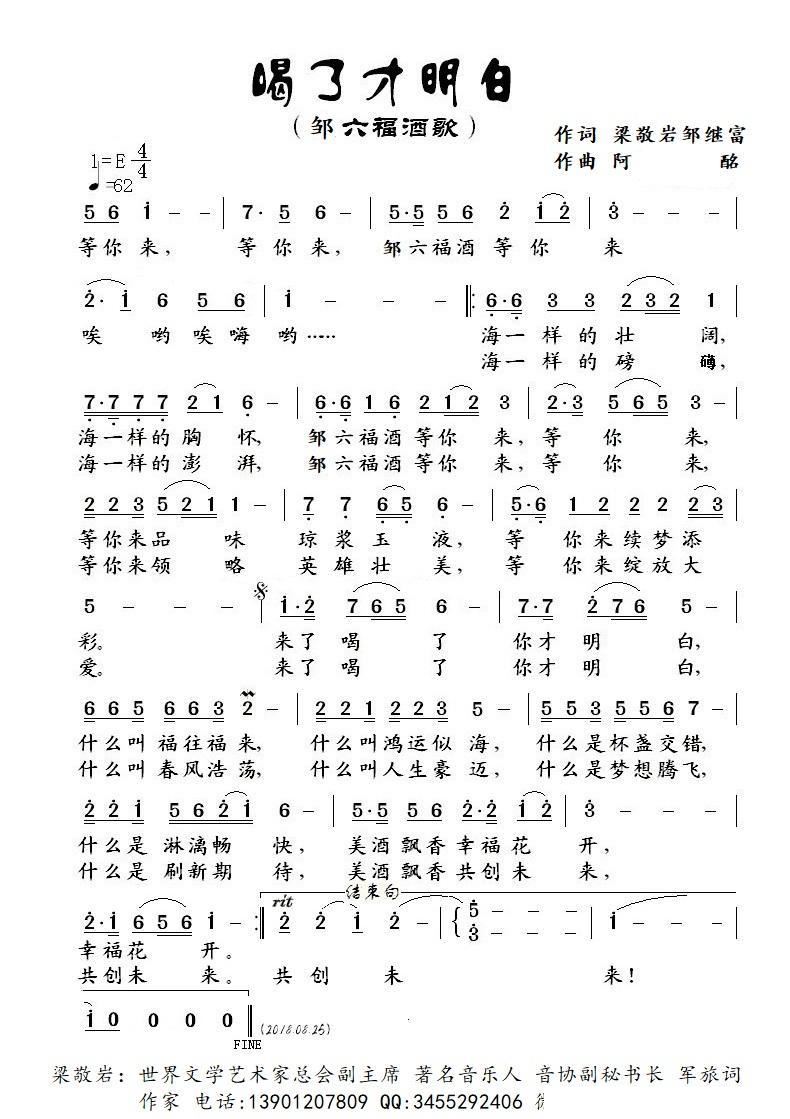 喝了才明白
（邹六福酒歌）
作词 梁敬岩邹继富
作曲 阿 酩
1=E 4/4
♩=62
5 6 i - - | 7· 5 6 - | 5·5 5 6 2 i 2 | 3 - - |
等你 来， 等 你 来， 邹六福酒 等 你 来
2· i 6 5 6 | i - - - ‖: 6·6 3 3 2 3 2 1 |
唉 哟 唉 嗨 哟…… 海一 样 的 壮 阔，
海一 样 的 磅 礴，
7·7 7 7 2 1 6 - | 6·6 1 6 2 1 2 3 | 2·3 5 6 5 |
海一样的 胸 怀， 邹六福酒 等你 来， 等 你 来，
海一样的 澎 湃， 邹六福酒 等你 来， 等 你 来，
2 2 3 5 2 1 1 - | 7 7 6 5 6 - | 5·6 1 2 2 2 |
等你来品 味 琼 浆 玉 液， 等 你 来续梦添
等你来领 略 英 雄 壮 美， 等 你 来绽放大
5 - - - | i·2 7 6 5 6 - | 7·7 2 7 6 5 - |
彩。 来了 喝 了 你才 明 白，
爱。 来了 喝 了 你才 明 白，
6 6 5 6 6 3 2 - | 2 2 1 2 2 3 5 - | 5 5 3 5 5 6 7 - |
什么叫 福往福 来， 什么叫鸿运似 海， 什么是杯盏交错，
什么叫 春风浩 荡， 什么叫人生豪 迈， 什么是梦想腾飞，
2 2 i 5 6 2 i 6 - | 5·5 5 6 2·2 i 2 | 3 - - |
什么是 淋漓畅 快， 美酒飘香幸福花 开，
什么是 刷新期 待， 美酒飘香共创未 来，
结束句
2·i 6 5 6 i - :‖ rit 2 2 i 2 - | 5 3 - - - | i - - |
幸福花 开。
共创未 来。 共 创 未 来！
i 0 0 0 0 ‖ (2018.08.25)
FINE
梁敬岩：世界文学艺术家总会副主席 著名音乐人 音协副秘书长 军旅词
作家 电话:13901207809 QQ:3455292406